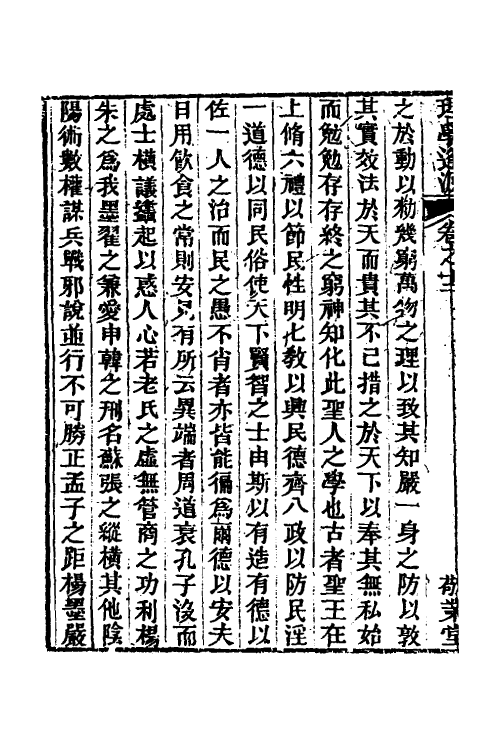 理學逢源 卷之十二 敬業堂
之於動以勑幾窮萬物之理以致其知嚴一身之防以敦
其實效法於天而貴其不已措之於天下以奉其無私始
而勉勉存存終之窮神知化此聖人之學也古者聖王在
上脩六禮以節民性明七教以興民德齊八政以防民淫
一道德以同民俗使天下賢智之士由斯以有造有德以
佐一人之治而民之愚不肖者亦皆能徧為爾德以安夫
日用飲食之常則安見有所云異端者周道衰孔子沒而
處士橫議蠭起以惑人心若老氏之虛無管商之功利楊
朱之為我墨翟之兼愛申韓之刑名蘇張之縱橫其他陰
陽術數權謀兵戰邪說並行不可勝正孟子之距楊墨嚴